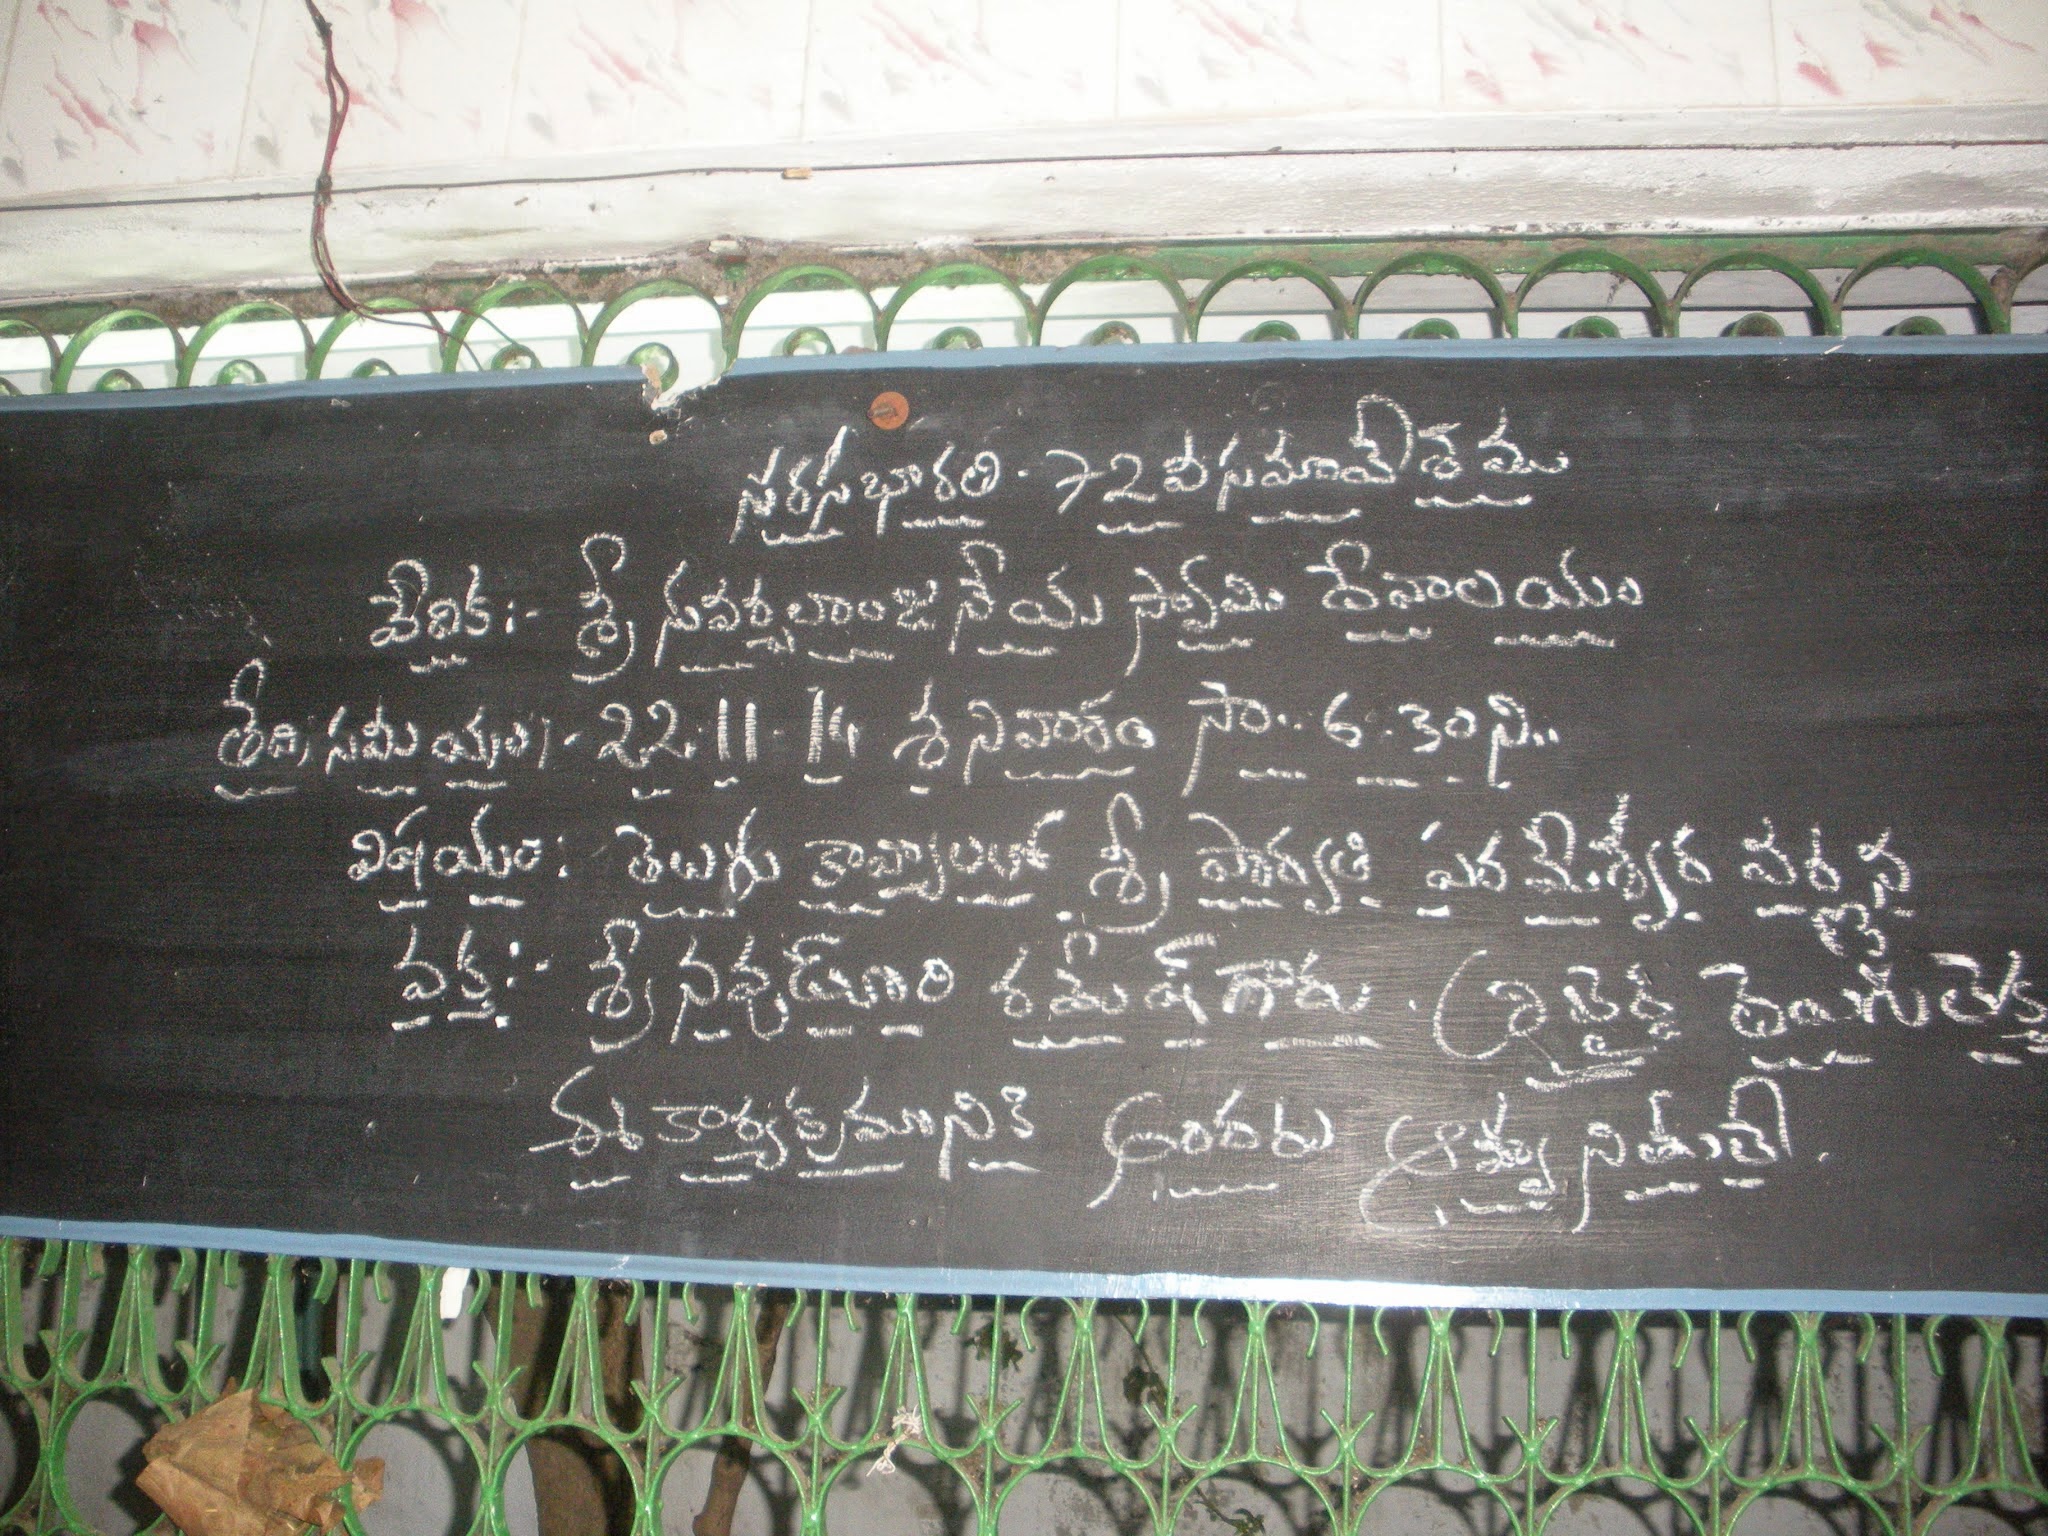 సరసభారతి - 72 వ సమావేశము
వేదిక :- శ్రీ సువర్చలాంజనేయ స్వామి దేవాలయం
తేది, సమయం :- 22.11.14 శనివారం సా.. 6.30 ని..
విషయం : తెలుగు కావ్యాలలో శ్రీ పార్వతి పరమేశ్వర వర్ణన
వక్త :- శ్రీ నవుడూరి గారు.
ఈ కార్యక్రమానికి అందరు